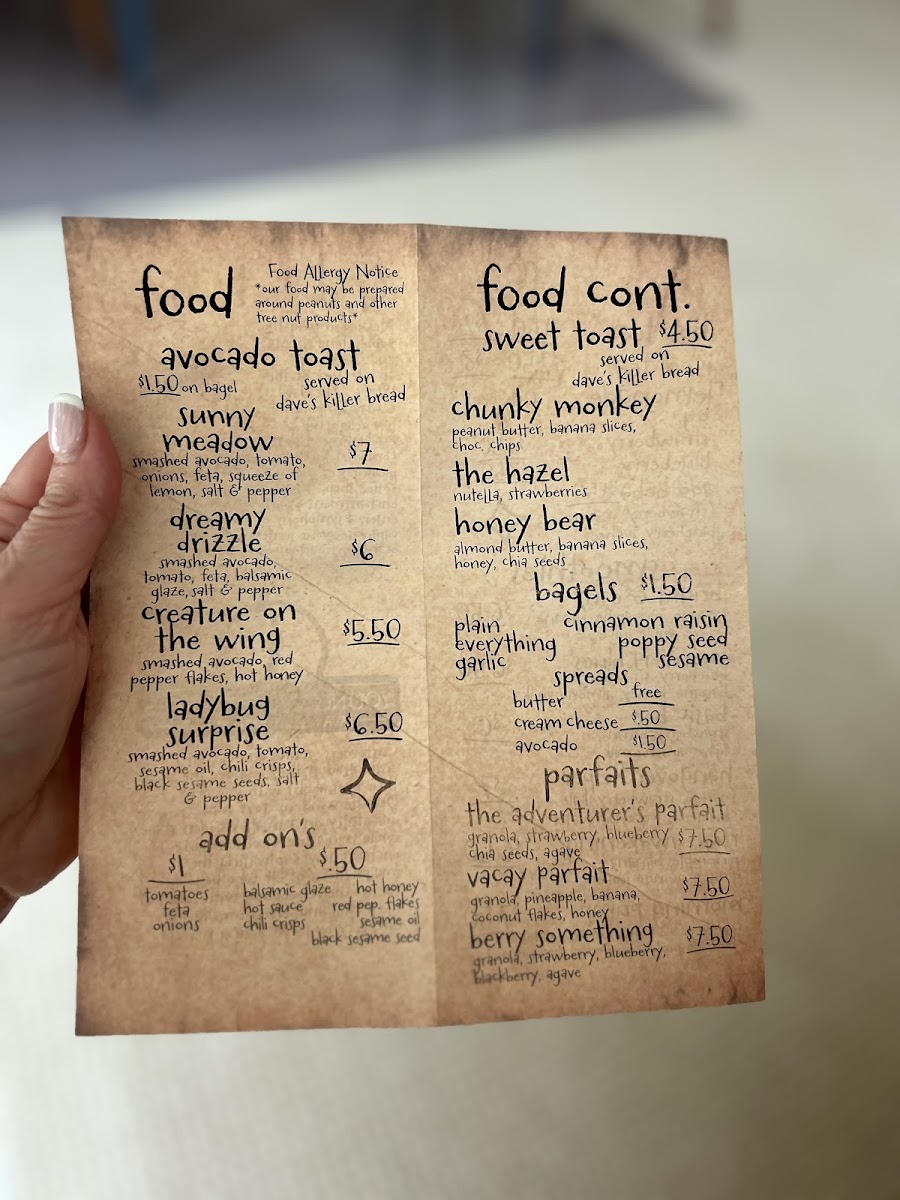 food
Food Allergy Notice
*our food may be prepared
around peanuts and other
tree nut products*
avocado toast
$1.50 on bagel
served on
dave's killer bread
sunny
meadow
$7
smashed avocado, tomato,
onions, feta, squeeze of
lemon, salt & pepper
dreamy
drizzle
$6
smashed avocado,
tomato, feta, balsamic
glaze, salt & pepper
creature on
the wing
$5.50
smashed avocado, red
pepper flakes, hot honey
ladybug
surprise
$6.50
smashed avocado, tomato,
sesame oil, chili crisps,
black sesame seeds, salt
& pepper
add on's
$1
tomatoes
feta
onions
$.50
balsamic glaze hot honey
hot sauce red pep. flakes
chili crisps sesame oil
black sesame seed
food cont.
sweet toast $4.50
served on
dave's killer bread
chunky monkey
peanut butter, banana slices,
choc. chips
the hazel
nutella, strawberries
honey bear
almond butter, banana slices,
honey, chia seeds
bagels $1.50
plain cinnamon raisin
everything poppy seed
garlic sesame
spreads
butter free
cream cheese $.50
avocado $1.50
parfaits
the adventurer's parfait
granola, strawberry, blueberry $7.50
chia seeds, agave
vacay parfait
$7.50
granola, pineapple, banana,
coconut flakes, honey
berry something $7.50
granola, strawberry, blueberry,
blackberry, agave